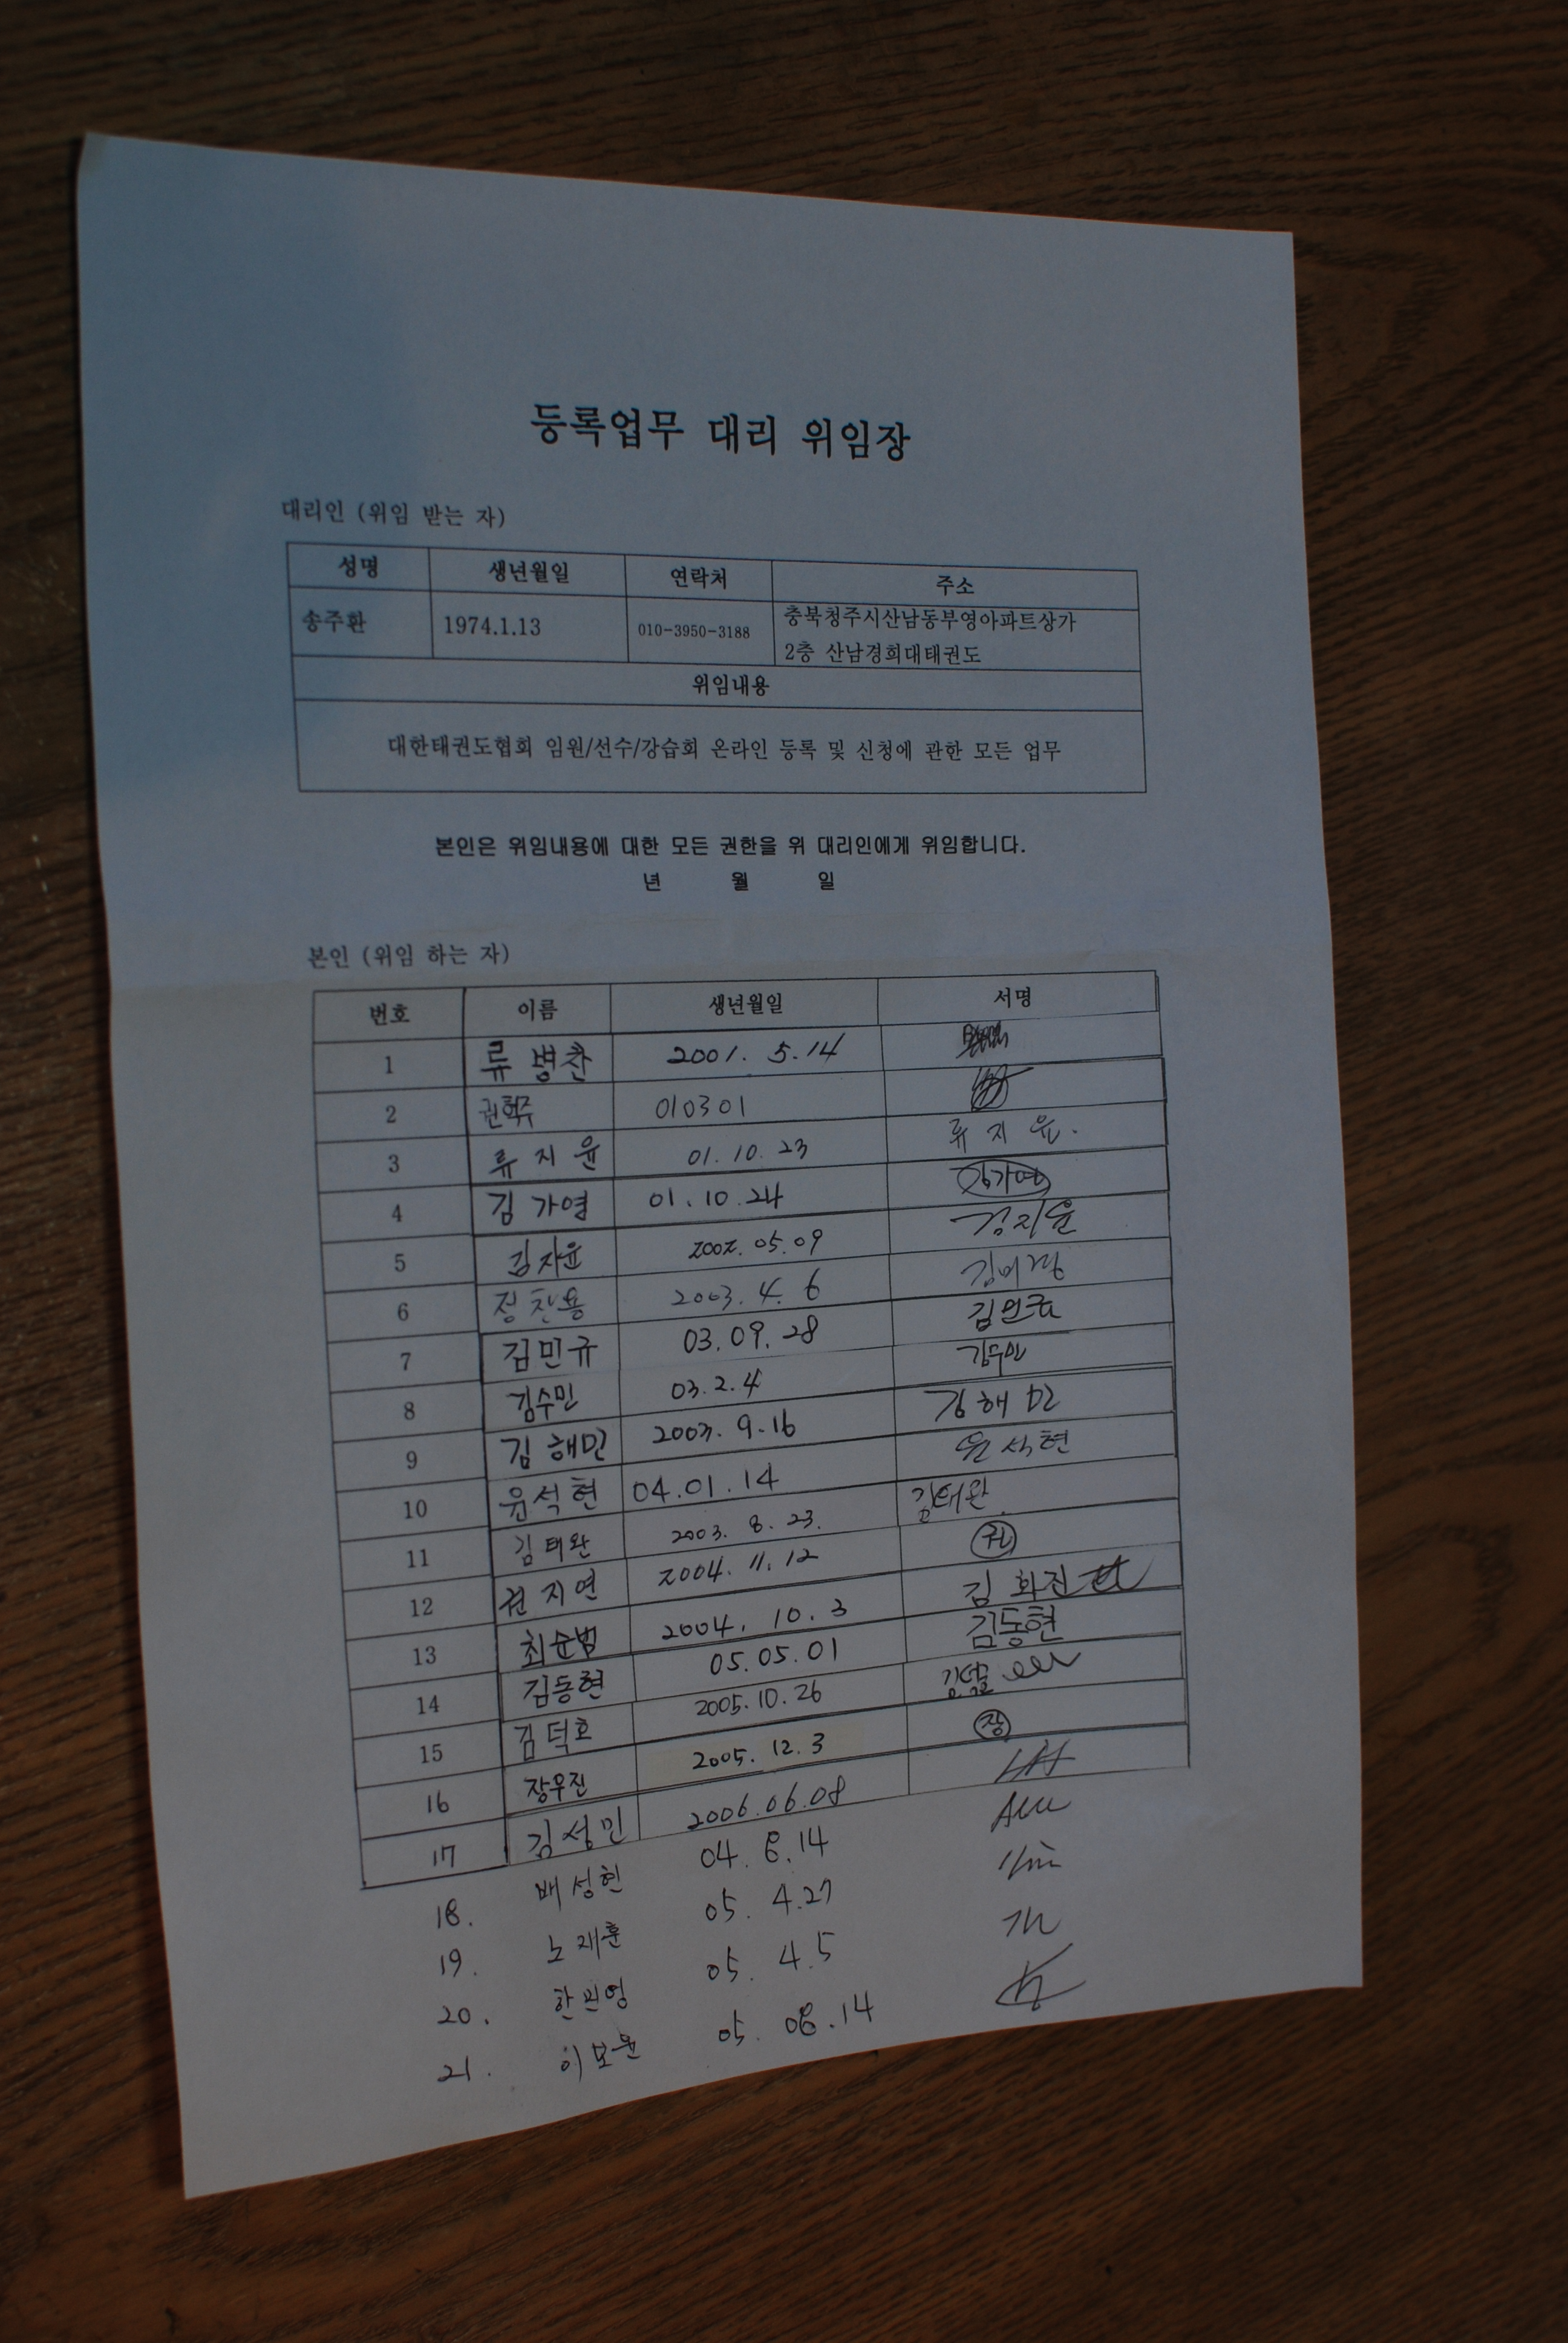 등록업무 대리 위임장
대리인 (위임 받는 자)
성명 생년월일 연락처 주소
송주환 1974.1.13 010-3950-3188 충북청주시산남동부영아파트상가
2층 산남경희대태권도
위임내용
대한태권도협회 임원/선수/강습회 온라인 등록 및 신청에 관한 모든 업무
본인은 위임내용에 대한 모든 권한을 위 대리인에게 위임합니다.
년 월 일
본인 (위임 하는 자)
번호 이름 생년월일 서명
1 류병찬 2001. 5.14
2 010301
3 류지윤 01.10.23 류지윤.
4 김가영 01.10.24 김가영
5 김자윤 2002.05.09
6 정찬용 2003.4.6
7 김민규 03.09.28 김민규
8 김수민 03.2.4 김수민
9 김해민 2003.9.16 김해민
10 윤석현 04.01.14 윤석현
11 김태완 2003.8.23. 김태완
12 권지연 2004.11.12 권
13 최순범 2004.10.3 김화진
14 김동현 05.05.01 김동현
15 김덕호 2005.10.26
16 장우진 2005.12.3 장
17 김성민 2006.06.08
18. 배성현 04.8.14
19. 노재훈 05.4.27
20. 한민영 05.4.5
21. 이보윤 05.08.14